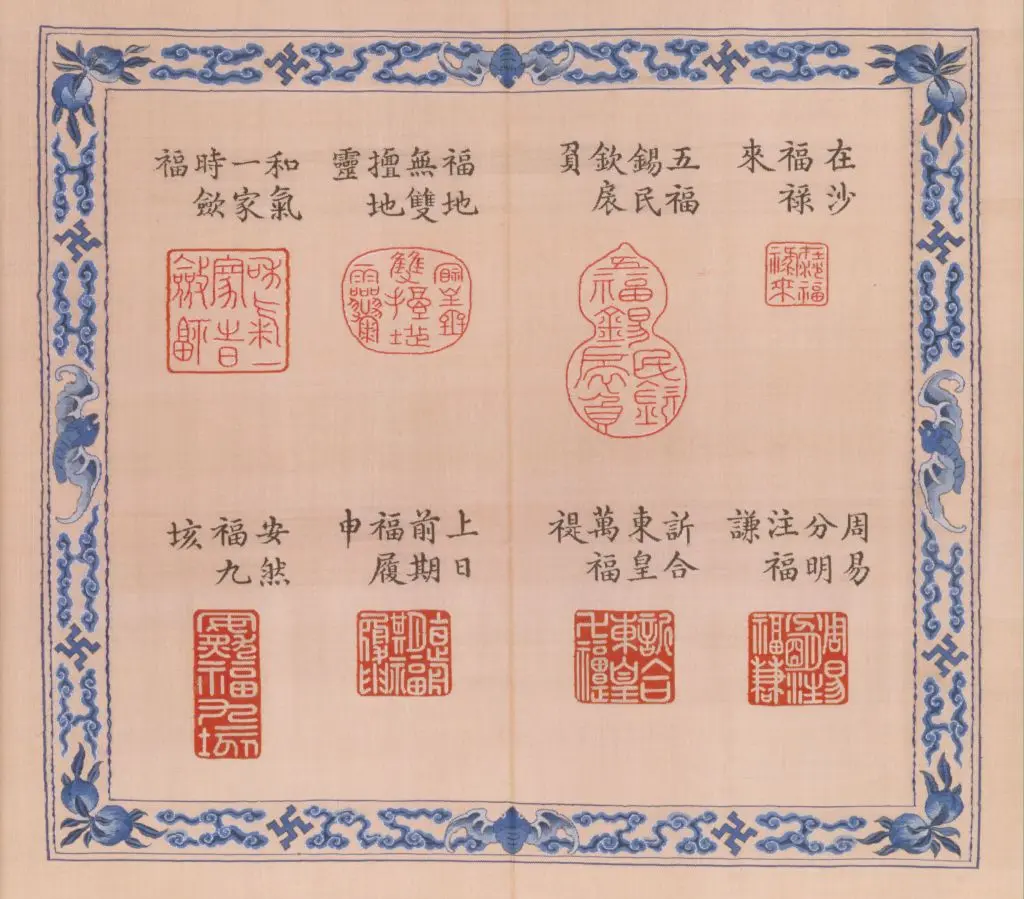 在沙福祿來
五福錫民欽扆負
福地無雙擅地靈
和氣一家時歛福
周易分明注福謙
訢合東皇萬福禔
上日前期福履申
安然福九垓